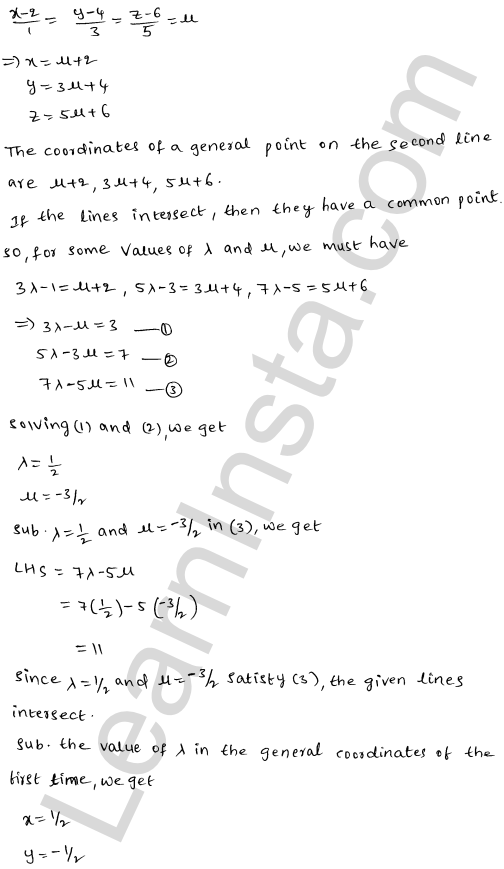 x-2/1 = y-4/3 = z-6/5 = μ
⇒) x = μ+2
y = 3μ+4
z = 5μ+6
The coordinates of a general point on the second line
are μ+2, 3μ+4, 5μ+6.
If the lines intersect, then they have a common point.
so, for some values of λ and μ, we must have
3λ-1 = μ+2, 5λ-3 = 3μ+4, 7λ-5 = 5μ+6
⇒) 3λ-μ = 3 —①
5λ-3μ = 7 —②
7λ-5μ = 11 —③
solving (1) and (2), we get
λ = 1/2
μ = -3/2
sub. λ = 1/2 and μ = -3/2 in (3), we get
LHS = 7λ-5μ
= 7(1/2) - 5(-3/2)
= 11
since λ = 1/2 and μ = -3/2 satisty (3), the given lines
intersect.
sub. the value of λ in the general coordinates of the
first time, we get
x = 1/2
y = -1/2
LearnInsta.com